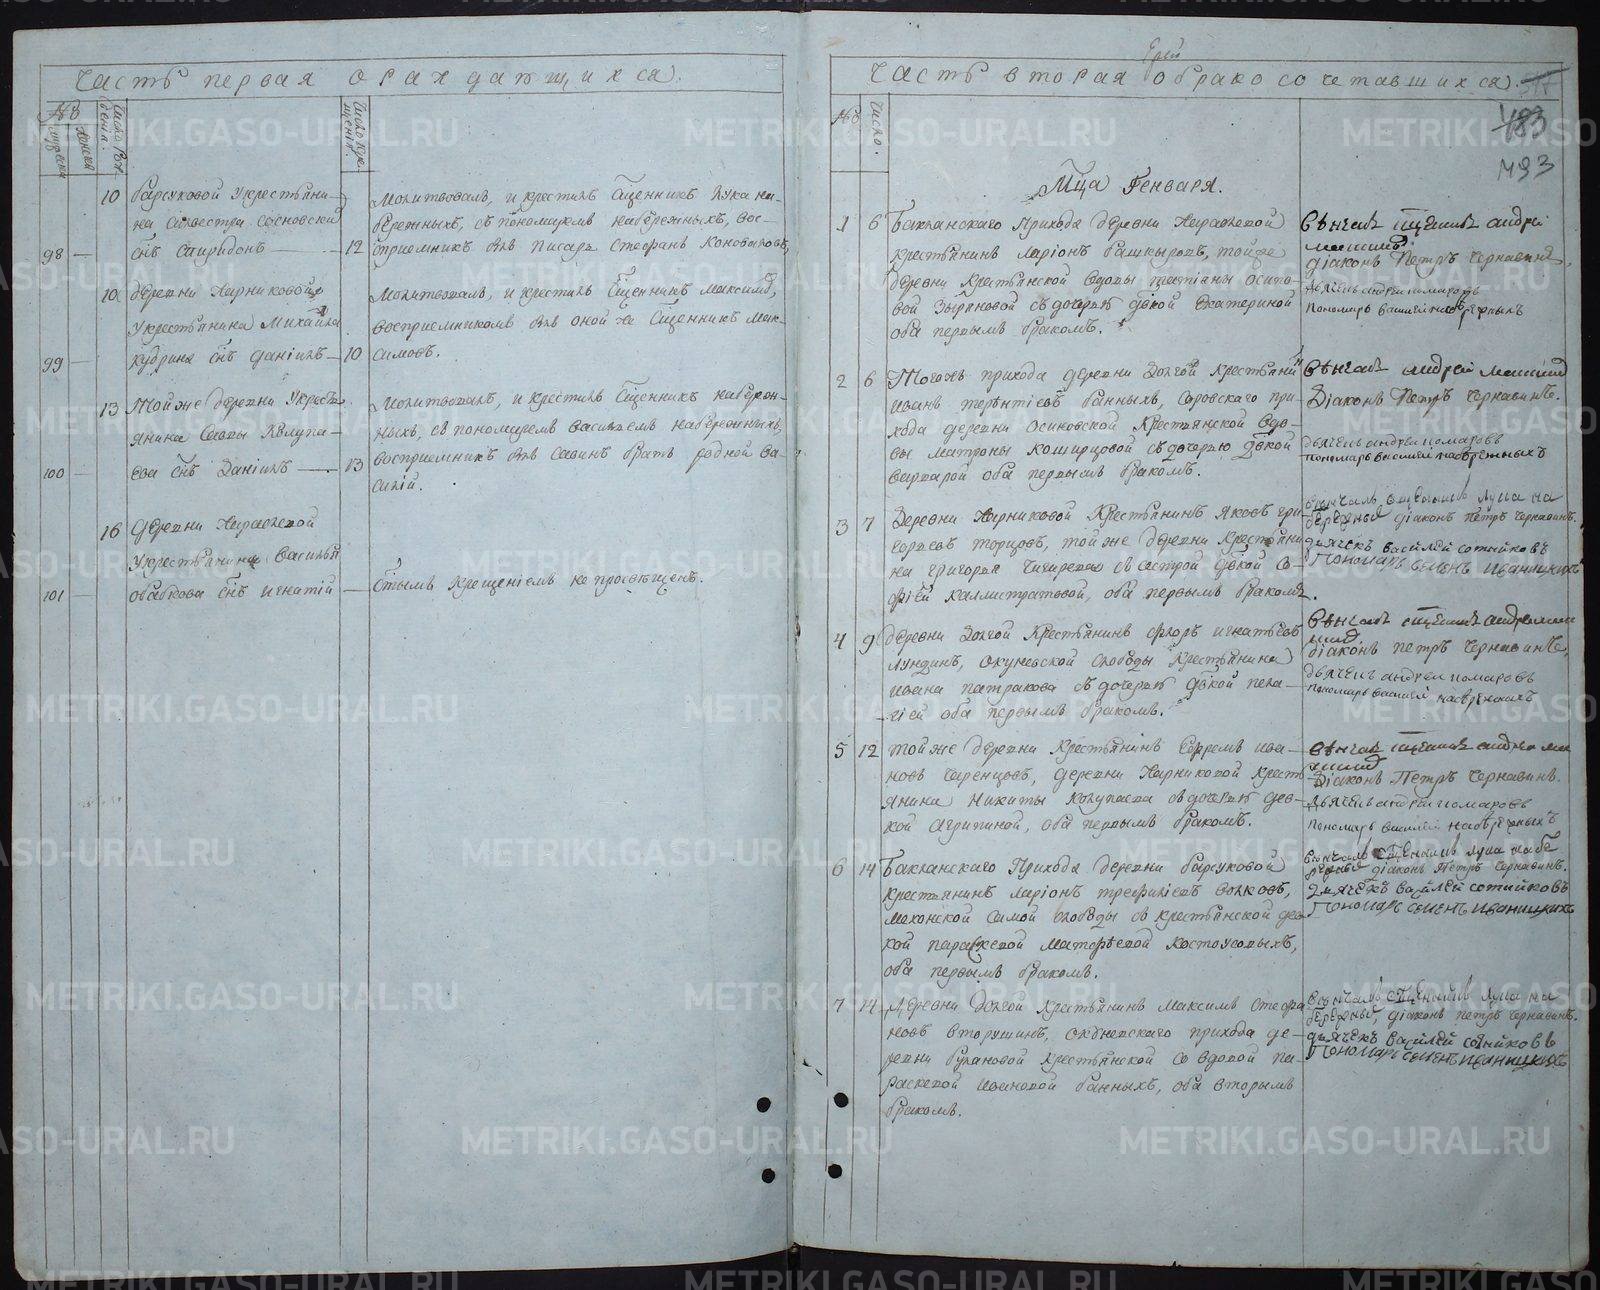 Часть первая о раждающихся.
№
мужеска
женска
Число рож
денія.
Число кре
щенія.
10 Барсуковой у крестьяни-
на Силвестра Сосновски
98 — снъ Спиридонъ — 12
Молитвовалъ, и крестилъ Сщенникъ Лука На-
бережныхъ, съ пономаремъ Набережныхъ, вос-
приемникъ былъ писарь Стефанъ Коноваловъ,
10 деревни Жирниковой
у крестьянина Михаила
99 — Кубрина снъ Даніилъ — 10
Молитвовалъ, и крестилъ Сщенникъ Максимовъ,
восприемникомъ былъ оной же Сщенникъ Мак-
симовъ.
13 Той же деревни у кресть
янина Саввы Колупа-
100 — ева снъ Даніилъ — 13
Молитвовалъ, и крестилъ Сщенникъ Набереж-
ныхъ, съ пономаремъ Василіемъ Набережныхъ,
восприемникъ былъ Саввинъ братъ родной Ва-
силій.
16 деревни
у крестьянина Василья
101 — снъ Игнатій —
Стымъ Крещеніемъ не просвѣщенъ.
Часть вторая о бракосочетавшихся.
483
493
№
Число.
Мца Генваря.
1 6 Бакланскаго Прихода деревни
крестьянинъ Ларіонъ Башкировъ, той же
деревни Крестьянской вдовы
вой Зыряновой съ дочерью дѣвкой Екатериной
оба первымъ бракомъ.
Вѣнчалъ сщенникъ Андрей
діаконъ Петръ Чернавинъ,
дьячекъ Андрей Комаровъ
Пономарь Василей Набережныхъ
2 6 Тогожъ прихода деревни Долгой крестьянинъ
Иванъ Терентіевъ Банныхъ, Соровскаго при-
хода деревни Осиновской Крестьянской вдо-
вы Матроны Кошкаровой съ дочерью дѣвкой
Варварой оба первымъ бракомъ.
Вѣнчалъ Андрей
Діаконъ Петръ Чернавинъ.
дьячекъ Андрей Комаровъ
пономарь Василей Набережныхъ
3 7 Деревни Жирниковой Крестьянинъ Яковъ Гри
горьевъ Торцовъ, той же деревни Крестьяни
на Григорья съ сестрой дѣвкой Со-
фіей Каллистратовой, оба первымъ бракомъ.
Вѣнчалъ сщенникъ Лука На
бережныхъ діаконъ Петръ Чернавинъ.
дьячекъ Василей Сотниковъ
Пономарь Семенъ Иваницкихъ
4 9 деревни Долгой Крестьянинъ Флоръ Игнатьевъ
Лундинъ, Окуневской Слободы Крестьянина
Ивана Патракова съ дочерью дѣвкой Пела-
гіей оба первымъ бракомъ.
Вѣнчалъ сщенникъ Андрей
діаконъ Петръ Чернавинъ,
дьячекъ Андрей Комаровъ
пономарь Василей Набережныхъ
5 12 той же деревни Крестьянинъ Ефремъ Ива-
новъ, деревни Жирниковой крест
янина Никиты Колупаева съ дочерью дѣв-
кой Агрипиной, оба первымъ бракомъ.
Вѣнчалъ сщенникъ Андрей
Діаконъ Петръ Чернавинъ.
дьячекъ Андрей Комаровъ
пономарь Василей Набережныхъ
6 14 Бакланскаго Прихода деревни Барсуковой
крестьянинъ Ларіонъ Трефиліевъ Волковъ,
Маконской самой слободы съ крестьянской дѣв
кой Параскевой Матфѣевой Костоусовыхъ,
оба первымъ бракомъ.
Вѣнчалъ Сщенникъ Лука Набе
режныхъ діаконъ Петръ Чернавинъ.
дьячекъ Василей Сотниковъ
Пономарь Семенъ Иваницкихъ
7 14 Деревни Долгой Крестьянинъ Максимъ Стефа
новъ Вторушинъ, Окуневскаго прихода де-
ревни Булановой крестьянской со вдовой Па-
раскевой Ивановой Банныхъ, оба вторымъ
бракомъ.
Вѣнчалъ Сщенникъ Лука На
бережныхъ, діаконъ Петръ Чернавинъ.
дьячекъ Василей Сотниковъ
Пономарь Семенъ Иваницкихъ
METRIKI.GASO-URAL.RU